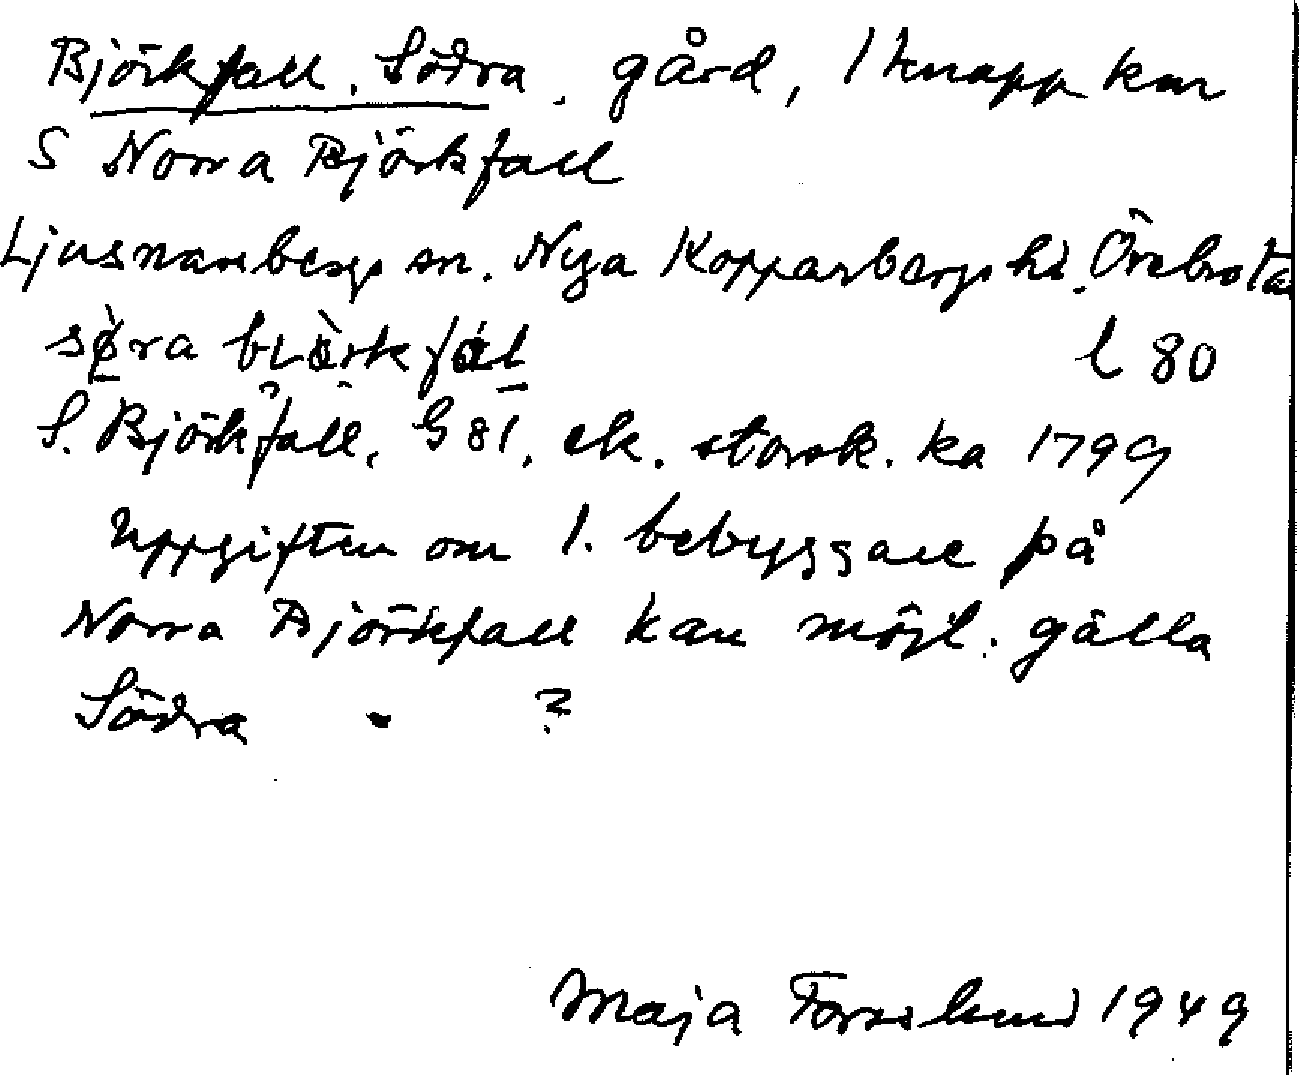 Björkfall, Södra. gård, 1 knapp km
S Norra Björkfall
Ljusnarsbergs sn. Nya Kopparbergs hd. Örebro län
l 80
S. Björkfall, G 81, ek. storsk. ka 1799
Uppgiften om 1. bebyggare på
Norra Björkfall kan möjl. gälla
Södra - ?
Maja Forsslund 1949